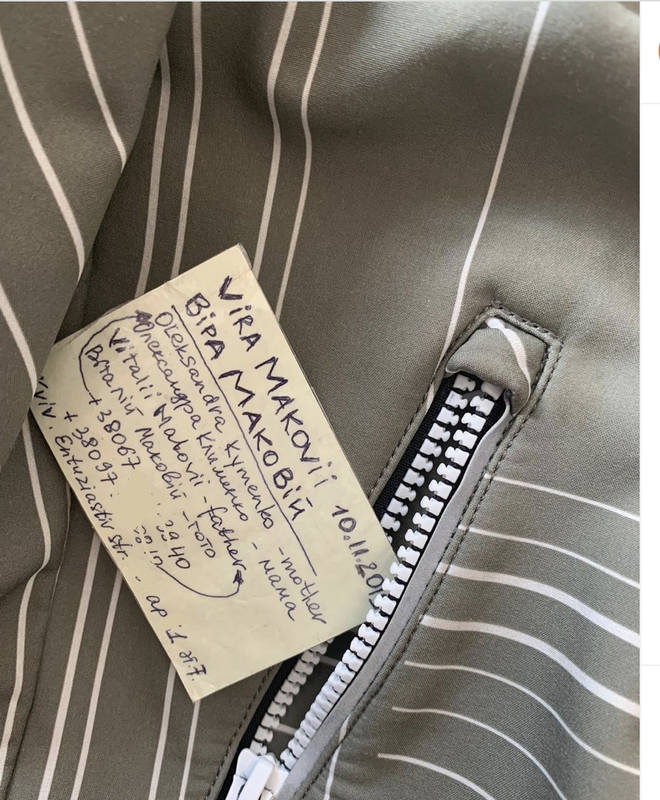 VIRA MAKOVII
ВІРА МАКОВІЙ 10.11.
Oleksandra Kymenko - mother
Олександра Клименко - мама
Vitalii Makovii - father
Віталій Маковій - тато
+38067
+38097
Entuziastiv str. ap.